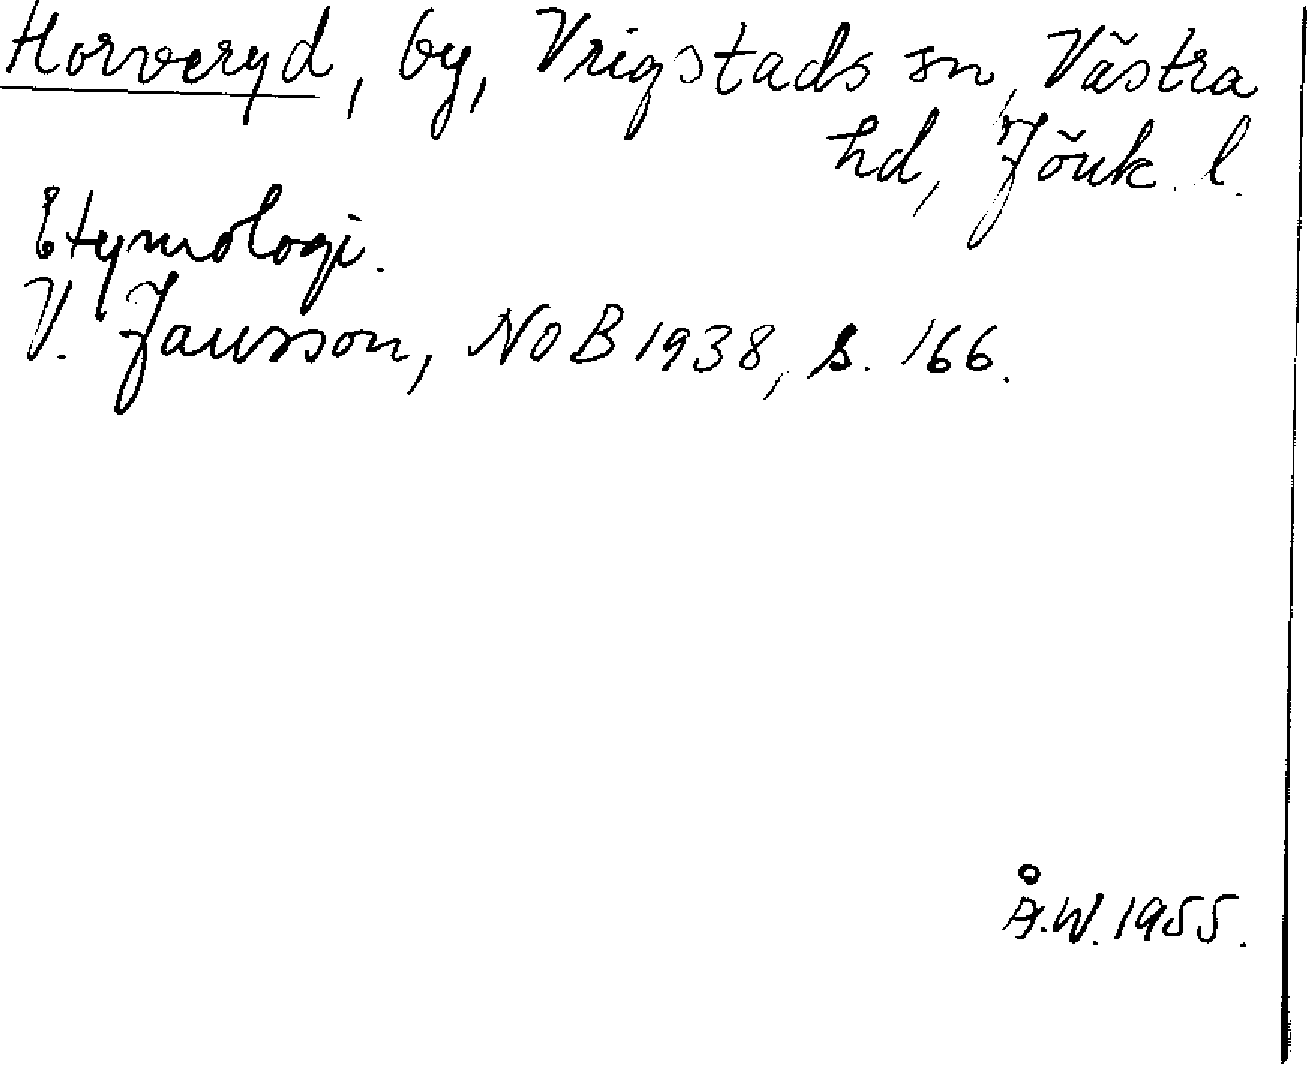 Horveryd, by, Vrigstads sn, Västra
hd, Jönk. l.
Etymologi.
V. Jansson, NoB 1938, s. 166.
Å.W. 1955.